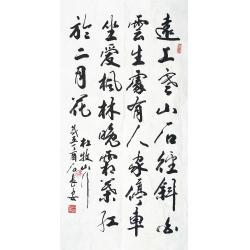 遠上寒山石徑斜白
雲生處有人家停車
坐愛楓林晚霜葉紅
於二月花
杜牧山行